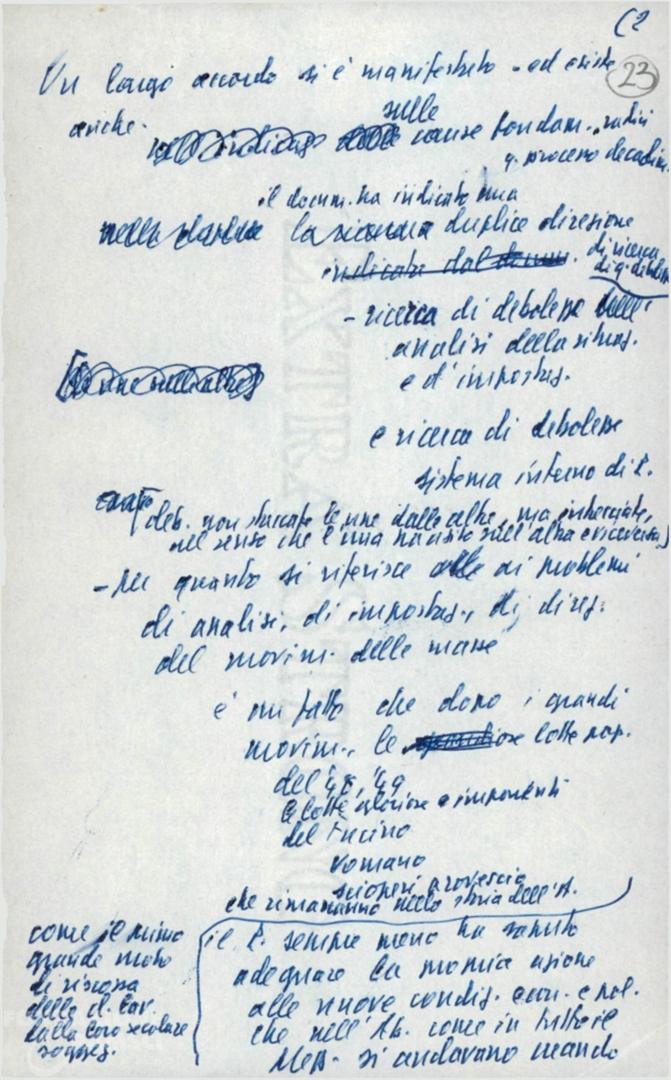 (2
23
Un largo accordo si è manifestato - ed esiste
anche -
sulle
cause fondam., radici
q. processo decadim.
il docum. ha indicato una
nelle
la ricerca duplice direzione
indicata dal docum.
di ricerca
di q. debolezze
- ricerca di debolezze delle
analisi della situaz.
e d'impostaz.
e ricerca di debolezze
sistema interno di P.
deb. non staccate le une dalle altre, ma intrecciate,
nel senso che l'una ha inciso sull'altra e viceversa)
- per quanto si riferisce alle ai problemi
di analisi, di impostaz., di direz.
del movim. delle masse
è un fatto che dopo i grandi
movim., le lotte pop.
del '48, '49
le lotte gloriose e imponenti
del Fucino
romano
scioperi a rovescio
che rimarranno nella storia dell'A.
come il primo
grande moto
di riscossa
delle cl. lav.
dalla loro secolare
soggez.
il P. sempre meno ha saputo
adeguare la propria azione
alle nuove condiz. econ. e pol.
che nell'Ab. come in tutto il
Mer. si andavano creando